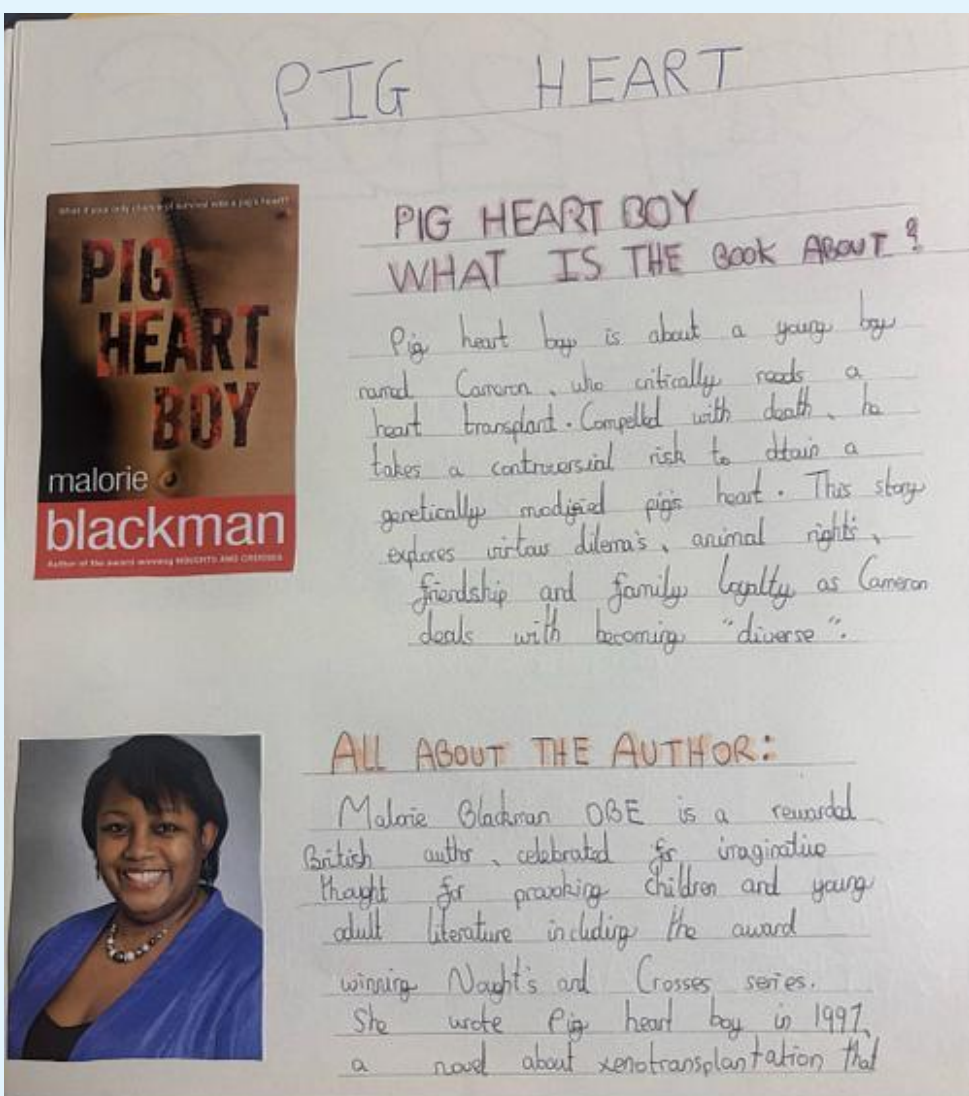 PIG HEART
What if your only chance of survival was a pig's heart?
PIG
HEART
BOY
malorie
blackman
Author of the award-winning NOUGHTS AND CROSSES
PIG HEART BOY
WHAT IS THE BOOK ABOUT?
Pig heart boy is about a young boy
named Cameron, who critically needs a
heart transplant. Compelled with death, he
takes a controversial risk to obtain a
genetically modified pig's heart. This story
explores virtous dilema's, animal rights,
friendship and family loyalty as Cameron
deals with becoming "diverse".
ALL ABOUT THE AUTHOR:
Malorie Blackman OBE is a rewarded
British author, celebrated for imaginative
thought for provoking children and young
adult literature including the award
winning Nought's and Crosses series.
She wrote Pig heart boy in 1997,
a novel about xenotransplantation that